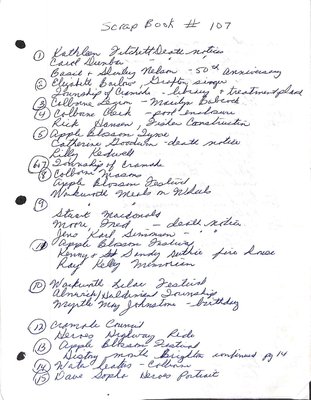 Scrap Book # 107
① Kathleen Fitchett Death notice
Carol Dunbar " "
Basil & Shirley Nelson - 50th anniversary
② Elizabeth Barlow Grafton singer
Township of Cramahe - library & treatment plant
③ Colborne Legion - Marilyn Babcock
④ Colborne Rink - pool enclosure
Rick Hansen, Fisher Construction
⑤ Apple Blossom Tyme
Catherine Goodwin - death notice
Lilly Redwell
⑥⑦ Township of Cramahe
⑧ Colborne Masons
Apple Blossom Festival
Warkworth Meals on Wheels
⑨
Stuart Macdonald
Moore Fred - death notice
Jens Karl Simonson - "
Apple Blossom Festival
Kenny & Sandy Guthrie fire house
Ray Kelly Memoriam
⑩ Warkworth Lilac Festival
Alnwick/Haldimand Township
Myrtle May Johnstone - birthday
⑫ Cramahe Council
Heroes Highway Ride
⑬ Apple Blossom Festival
History month Brighton continued pg 14
⑭ Water Leaks - Colborne
⑮ Dave Sopha Heroes Portrait